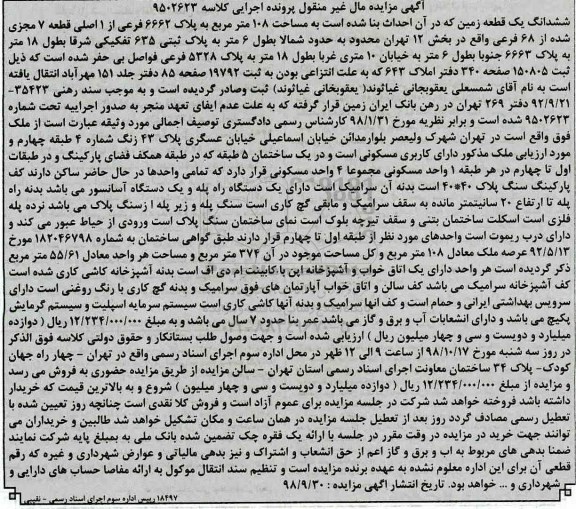 آگهی مزایده مال غیر منقول پرونده اجرایی کلاسه ۹۵۰۲۶۲۳
ششدانگ یک قطعه زمین که در آن احداث بنا شده است به مساحت ۱۰۸ متر مربع به پلاک ۶۶۶۲ فرعی از ۱ اصلی قطعه ۷ مجزی
شده از ۶۸ فرعی واقع در بخش ۱۲ تهران محدود به حدود شمالا بطول ۶ متر به پلاک ثبتی ۶۳۵ تفکیکی شرقا بطول ۱۸ متر
به پلاک ۶۶۶۳ جنوبا بطول ۶ متر به خیابان ۱۰ متری غربا بطول ۱۸ متر به پلاک ۵۳۲۸ فرعی فواصل بی حفر شده است که ذیل
ثبت ۱۵۰۸۰۵ صفحه ۳۴۰ دفتر املاک ۶۴۳ که به علت انتزاعی بودن به ثبت ۱۹۷۹۲ صفحه ۸۵ دفتر جلد ۱۵۱ مهرآباد انتقال یافته
است به نام آقای شمسعلی یعقوبجانی غیاثوند( یعقوبخانی غیاثوند) ثبت وصادر گردیده است و به موجب سند رهنی ۳۵۴۲۳-
۹۲/۹/۲۱ دفتر ۲۶۹ تهران در رهن بانک ایران زمین قرار گرفته که به علت عدم ایفای تعهد منجر به صدور اجراییه تحت شماره
۹۵۰۲۶۲۳ شده است و برابر نظریه مورخ ۹۸/۱/۳۱ کارشناس رسمی دادگستری توصیف اجمالی مورد وثیقه عبارت است از ملک
فوق واقع است در تهران شهرک ولیعصر بلوارمدائن خیابان اسماعیلی خیابان عسگری پلاک ۴۳ زنگ شماره ۴ طبقه چهارم و
مورد ارزیابی ملک مذکور دارای کاربری مسکونی است و در یک ساختمان ۵ طبقه که در طبقه همکف فضای پارکینگ و در طبقات
اول تا چهارم در هر طبقه ۱ واحد مسکونی مجموعا ۴ واحد مسکونی قرار دارد که تمامی واحدها در حال حاضر ساکن دارند کف
پارکینگ سنگ پلاک ۴۰*۴۰ است بدنه آن سرامیک است دارای یک دستگاه راه پله و یک دستگاه آسانسور می باشد بدنه راه
پله تا ارتفاع ۲۰ سانتیمتر مانده به سقف سرامیک و مابقی گچ کاری است سنگ پله و زیر پله ا زسنگ پلاک می باشد نرده پله
فلزی است اسکلت ساختمان بتنی و سقف تیرچه بلوک است نمای ساختمان سنگ پلاک است ورودی از حیاط عبور می کند و
دارای درب ریموت است واحدهای مورد نظر از طبقه اول تا چهارم قرار دارند طبق گواهی ساختمان به شماره ۱۸۲۰۴۶۷۹۸ مورخ
۹۲/۵/۱۳ عرصه ملک معادل ۱۰۸ متر مربع و کل مساحت موجود در آن ۳۷۴ متر مربع و مساحت هر واحد معادل ۵۵/۶۱ متر مربع
ذکر گردیده است هر واحد دارای یک اتاق خواب و آشپزخانه اپن با کابینت ام دی اف است بدنه آشپزخانه کاشی کاری شده است
کف آشپزخانه سرامیک می باشد کف سالن و اتاق خواب آپارتمان های فوق سرامیک و بدنه گچ کاری با رنگ روغنی است دارای
سرویس بهداشتی ایرانی و حمام است و کف آنها سرامیک و بدنه آنها کاشی کاری است سیستم سرمایه اسپلیت و سیستم گرمایش
پکیج می باشد و دارای انشعابات آب و برق و گاز می باشد عمر بنا حدود ۷ سال می باشد و به مبلغ ۱۲/۲۳۴/۰۰۰/۰۰۰ ریال ( دوازده
میلیارد و دویست و سی و چهار میلیون ریال ) ارزیابی شده است و جهت وصول طلب بستانکار و حقوق دولتی کلاسه فوق الذکر
در روز سه شنبه مورخ ۹۸/۱۰/۱۷ از ساعت ۹ الی ۱۲ ظهر در محل اداره سوم اجرای اسناد رسمی واقع در تهران - چهار راه جهان
کودک- پلاک ۳۴ ساختمان معاونت اجرای اسناد رسمی استان تهران - سالن مزایده از طریق مزایده حضوری به فروش می رسد
و مزایده از مبلغ ۱۲/۲۳۴/۰۰۰/۰۰۰ ریال ( دوازده میلیارد و دویست و سی و چهار میلیون ) شروع و به بالاترین قیمت که خریدار
داشته باشد فروخته خواهد شد شرکت در جلسه مزایده برای عموم آزاد است و فروش کلا نقدی است چنانچه روز تعیین شده با
تعطیل رسمی مصادف گردد روز بعد از تعطیل جلسه مزایده در همان ساعت و مکان تشکیل خواهد شد طالبین و خریداران می
توانند جهت خرید در مزایده در وقت مقرر در جلسه با ارائه یک فقره چک تضمین شده بانک ملی به مبلغ پایه شرکت نمایند
ضمنا بدهی های مربوط به آب و برق و گاز اعم از حق انشعاب و اشتراک و نیز بدهی مالیاتی و عوارض شهرداری و غیره که رقم
قطعی آن برای این اداره معلوم نشده به عهده برنده مزایده است و تنظیم سند انتقال موکول به ارائه مفاصا حساب های دارایی و
شهرداری و ... خواهد بود. تاریخ انتشار آگهی مزایده : ۹۸/۹/۳۰
۱۸۴۹۷ رییس اداره سوم اجرای اسناد رسمی - نقیبی